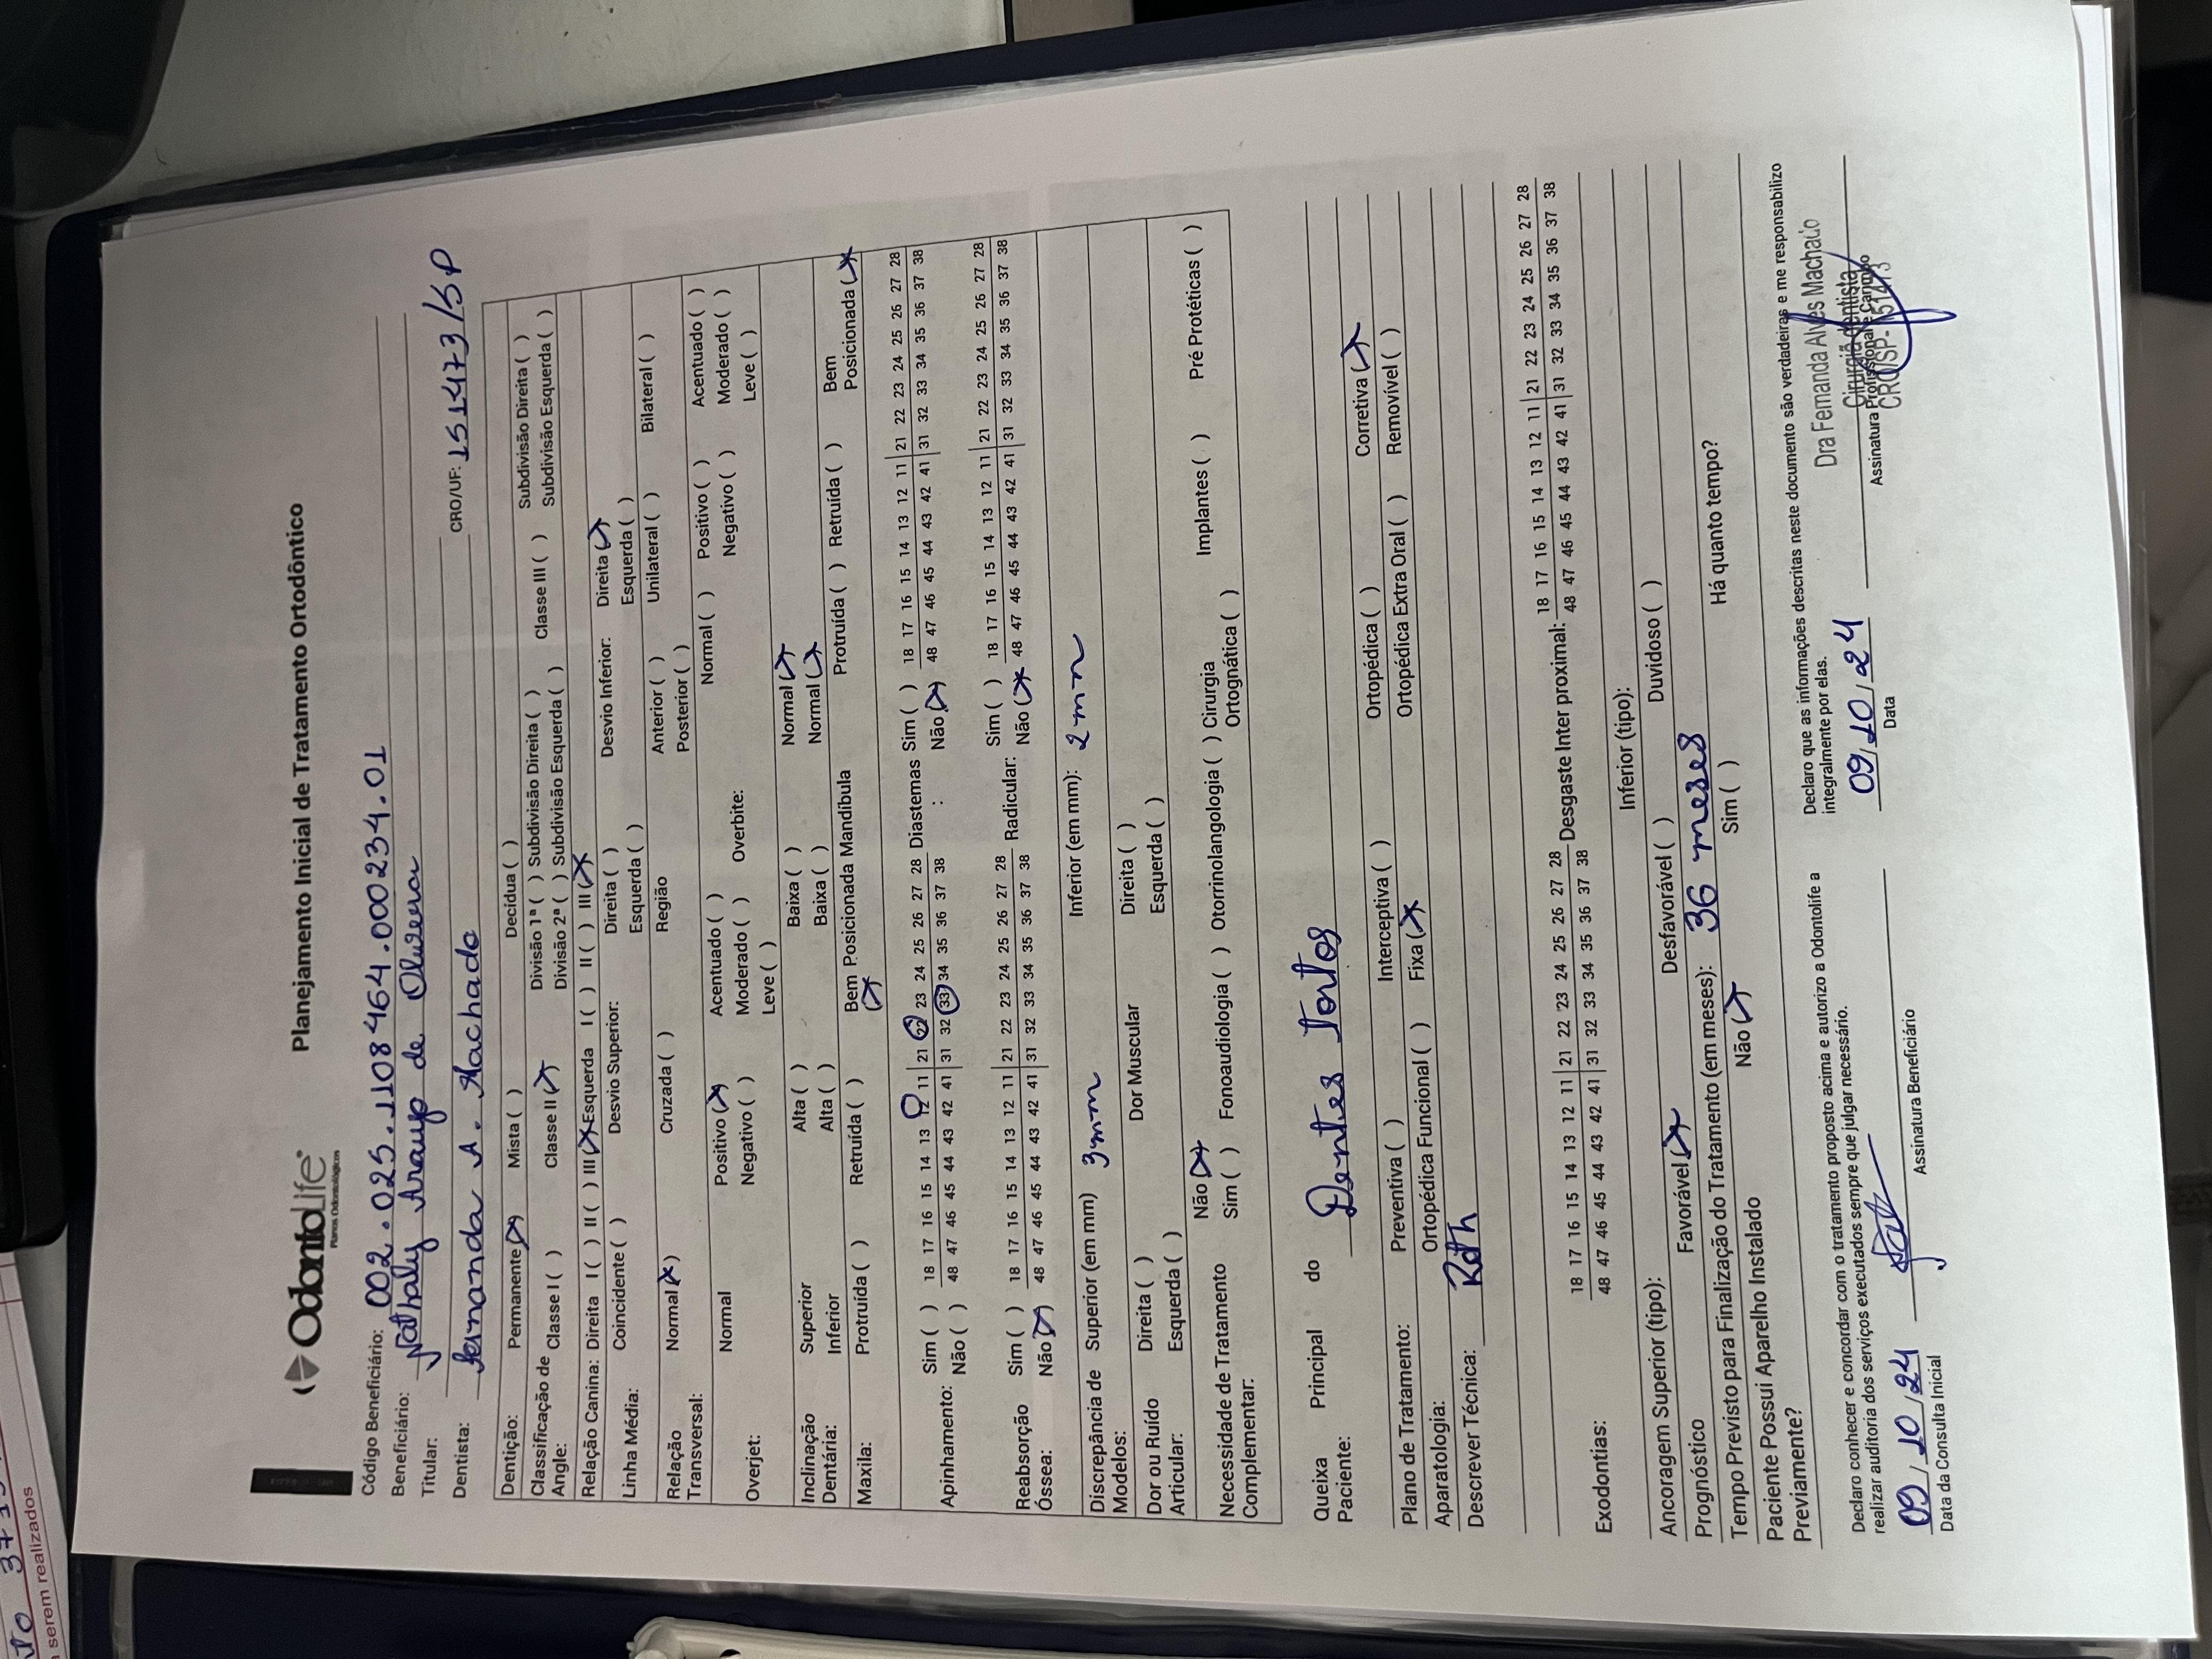 OdontoLife
Planos Odontológicos
Planejamento Inicial de Tratamento Ortodôntico
Código Beneficiário: 002.025.1108464.000234.01
Beneficiário: Nathaly Araujo de Oliveira
Titular:
Dentista: Fernanda A. Machado CRO/UF: 151473/SP
Dentição: Permanente (X) Mista ( ) Decídua ( )
Classificação de Angle: Classe I ( ) Classe II (X) Divisão 1ª ( ) Subdivisão Direita ( ) Classe III ( ) Subdivisão Direita ( )
Divisão 2ª ( ) Subdivisão Esquerda ( ) Subdivisão Esquerda ( )
Relação Canina: Direita I ( ) II ( ) III (X) Esquerda I ( ) II ( ) III (X)
Linha Média: Coincidente ( ) Desvio Superior: Direita ( ) Desvio Inferior: Direita (X)
Esquerda ( ) Esquerda ( )
Relação Transversal: Normal (X) Cruzada ( ) Região Anterior ( ) Unilateral ( ) Bilateral ( )
Posterior ( )
Overjet: Normal Positivo (X) Acentuado ( ) Overbite: Normal ( ) Positivo ( ) Acentuado ( )
Negativo ( ) Moderado ( ) Negativo ( ) Moderado ( )
Leve ( ) Leve ( )
Inclinação Dentária: Superior Alta ( ) Baixa ( ) Normal (X)
Inferior Alta ( ) Baixa ( ) Normal (X)
Maxila: Protruída ( ) Retruída ( ) Bem Posicionada (X) Mandíbula Protruída ( ) Retruída ( ) Bem Posicionada (X)
Apinhamento: Sim ( ) 18 17 16 15 14 13 12 11 21 22 23 24 25 26 27 28 Diastemas : Sim ( ) 18 17 16 15 14 13 12 11 21 22 23 24 25 26 27 28
Não ( ) 48 47 46 45 44 43 42 41 31 32 33 34 35 36 37 38 Não (X) 48 47 46 45 44 43 42 41 31 32 33 34 35 36 37 38
Reabsorção Óssea: Sim ( ) 18 17 16 15 14 13 12 11 21 22 23 24 25 26 27 28 Radicular: Sim ( ) 18 17 16 15 14 13 12 11 21 22 23 24 25 26 27 28
Não (X) 48 47 46 45 44 43 42 41 31 32 33 34 35 36 37 38 Não (X) 48 47 46 45 44 43 42 41 31 32 33 34 35 36 37 38
Discrepância de Modelos: Superior (em mm) 3mm Inferior (em mm): 2mm
Dor ou Ruído Articular: Direita ( ) Dor Muscular Direita ( )
Esquerda ( ) Esquerda ( )
Necessidade de Tratamento Complementar: Não (X)
Sim ( ) Fonoaudiologia ( ) Otorrinolangologia ( ) Cirurgia Ortognática ( ) Implantes ( ) Pré Protéticas ( )
Queixa Principal do Paciente: Dentes Tortos
Plano de Tratamento: Preventiva ( ) Interceptiva ( ) Ortopédica ( ) Corretiva (X)
Aparatologia: Ortopédica Funcional ( ) Fixa (X) Ortopédica Extra Oral ( ) Removível ( )
Descrever Técnica: Roth
Exodontias: 18 17 16 15 14 13 12 11 21 22 23 24 25 26 27 28 Desgaste Inter proximal: 18 17 16 15 14 13 12 11 21 22 23 24 25 26 27 28
48 47 46 45 44 43 42 41 31 32 33 34 35 36 37 38 48 47 46 45 44 43 42 41 31 32 33 34 35 36 37 38
Ancoragem Superior (tipo): Inferior (tipo):
Prognóstico Favorável (X) Desfavorável ( ) Duvidoso ( )
Tempo Previsto para Finalização do Tratamento (em meses): 36 meses
Paciente Possui Aparelho Instalado Previamente? Não (X) Sim ( ) Há quanto tempo?
Declaro conhecer e concordar com o tratamento proposto acima e autorizo a Odontolife a
realizar auditoria dos serviços executados sempre que julgar necessário.
09/10/24
Data da Consulta Inicial Assinatura Beneficiário
Declaro que as informações descritas neste documento são verdadeiras e me responsabilizo
integralmente por elas.
09/10/24
Data Assinatura Profissional e Carimbo
Dra Fernanda Alves Machado
Cirurgiã dentista
CRO/SP-151473
serem realizados